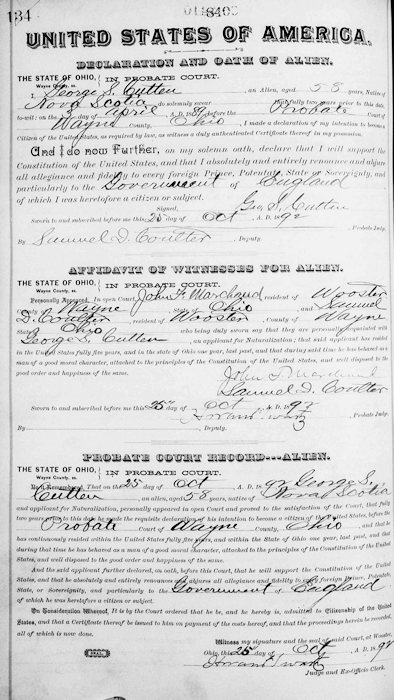 134
UNITED STATES OF AMERICA.
DECLARATION AND OATH OF ALIEN.
THE STATE OF OHIO, } IN PROBATE COURT.
Wayne County, ss.
I, George S. Cutten, an Alien, aged 58 years, Native of
Nova Scotia do solemnly swear that fully two years prior to this date,
to-wit: on the day of April A. D. 1889 before the Probate Court of
Wayne County, Ohio, I made a declaration of my intention to become a
Citizen of the United States, as required by law, as witness a duly authenticated Certificate thereof in my possession.
And I do now Further, on my solemn oath, declare that I will support the
Constitution of the United States, and that I absolutely and entirely renounce and abjure
all allegiance and fidelity to every foreign Prince, Potentate, State or Sovereignty, and
particularly to the Government of England
of which I was heretofore a citizen or subject.
Signed, Geo. S. Cutten
Sworn to and subscribed before me this 25 day of Oct, A. D. 1892
Probate Judge.
By Samuel D. Coulter, Deputy.
AFFIDAVIT OF WITNESSES FOR ALIEN.
THE STATE OF OHIO, } IN PROBATE COURT.
Wayne County, ss.
Personally Appeared in open Court, John F. Marchand resident of Wooster
County of Wayne, State of Ohio and Samuel
D. Coulter resident of Wooster, County of Wayne
State of Ohio who being duly sworn say that they are personally acquainted with
George S. Cutten, an applicant for Naturalization; that said applicant has resided
in the United States fully five years, and in the state of Ohio one year, last past, and that during said time he has behaved as
a man of a good moral character, attached to the principles of the Constitution of the United States, and well disposed to the
good order and happiness of the same.
John F. Marchand
Samuel D. Coulter
Sworn to and subscribed before me this 25th day of Oct A. D. 1892
Probate Judge.
By Deputy.
PROBATE COURT RECORD---ALIEN.
THE STATE OF OHIO, } IN PROBATE COURT.
Wayne County, ss.
Be it Remembered, That on the 25 day of Oct A. D. 1892 George S.
Cutten, an alien, aged 58 years, Native of Nova Scotia
and applicant for Naturalization, personally appeared in open Court and proved to the satisfaction of the Court, that fully
two years prior to this date he made the requisite declaration of his intention to become a citizen of the United States, before the
Probate Court of Wayne County, Ohio, and that he
has continuously resided within the United States fully five years, and within the State of Ohio one year, last past, and that
during that time he has behaved as a man of a good moral character, attached to the principles of the Constitution of the United
States, and well disposed to the good order and happiness of the same.
And the said applicant further declared, on oath, before this Court, that he will support the Constitution of the United
States, and that he absolutely and entirely renounces and abjures all allegiance and fidelity to every foreign Prince, Potentate,
State, or Sovereignty, and particularly to the Government of England
of which he was heretofore a citizen or subject.
On Consideration Whereof, It is by the Court ordered that he be, and he hereby is, admitted to Citizenship of the United
States, and that a Certificate thereof be issued to him on payment of the costs hereof, and that the proceedings herein be recorded,
all of which is now done.
Witness my signature and the seal of said Court, at Wooster,
Ohio, this 25 day of Oct A. D. 1892
Judge and Ex-Officio Clerk.